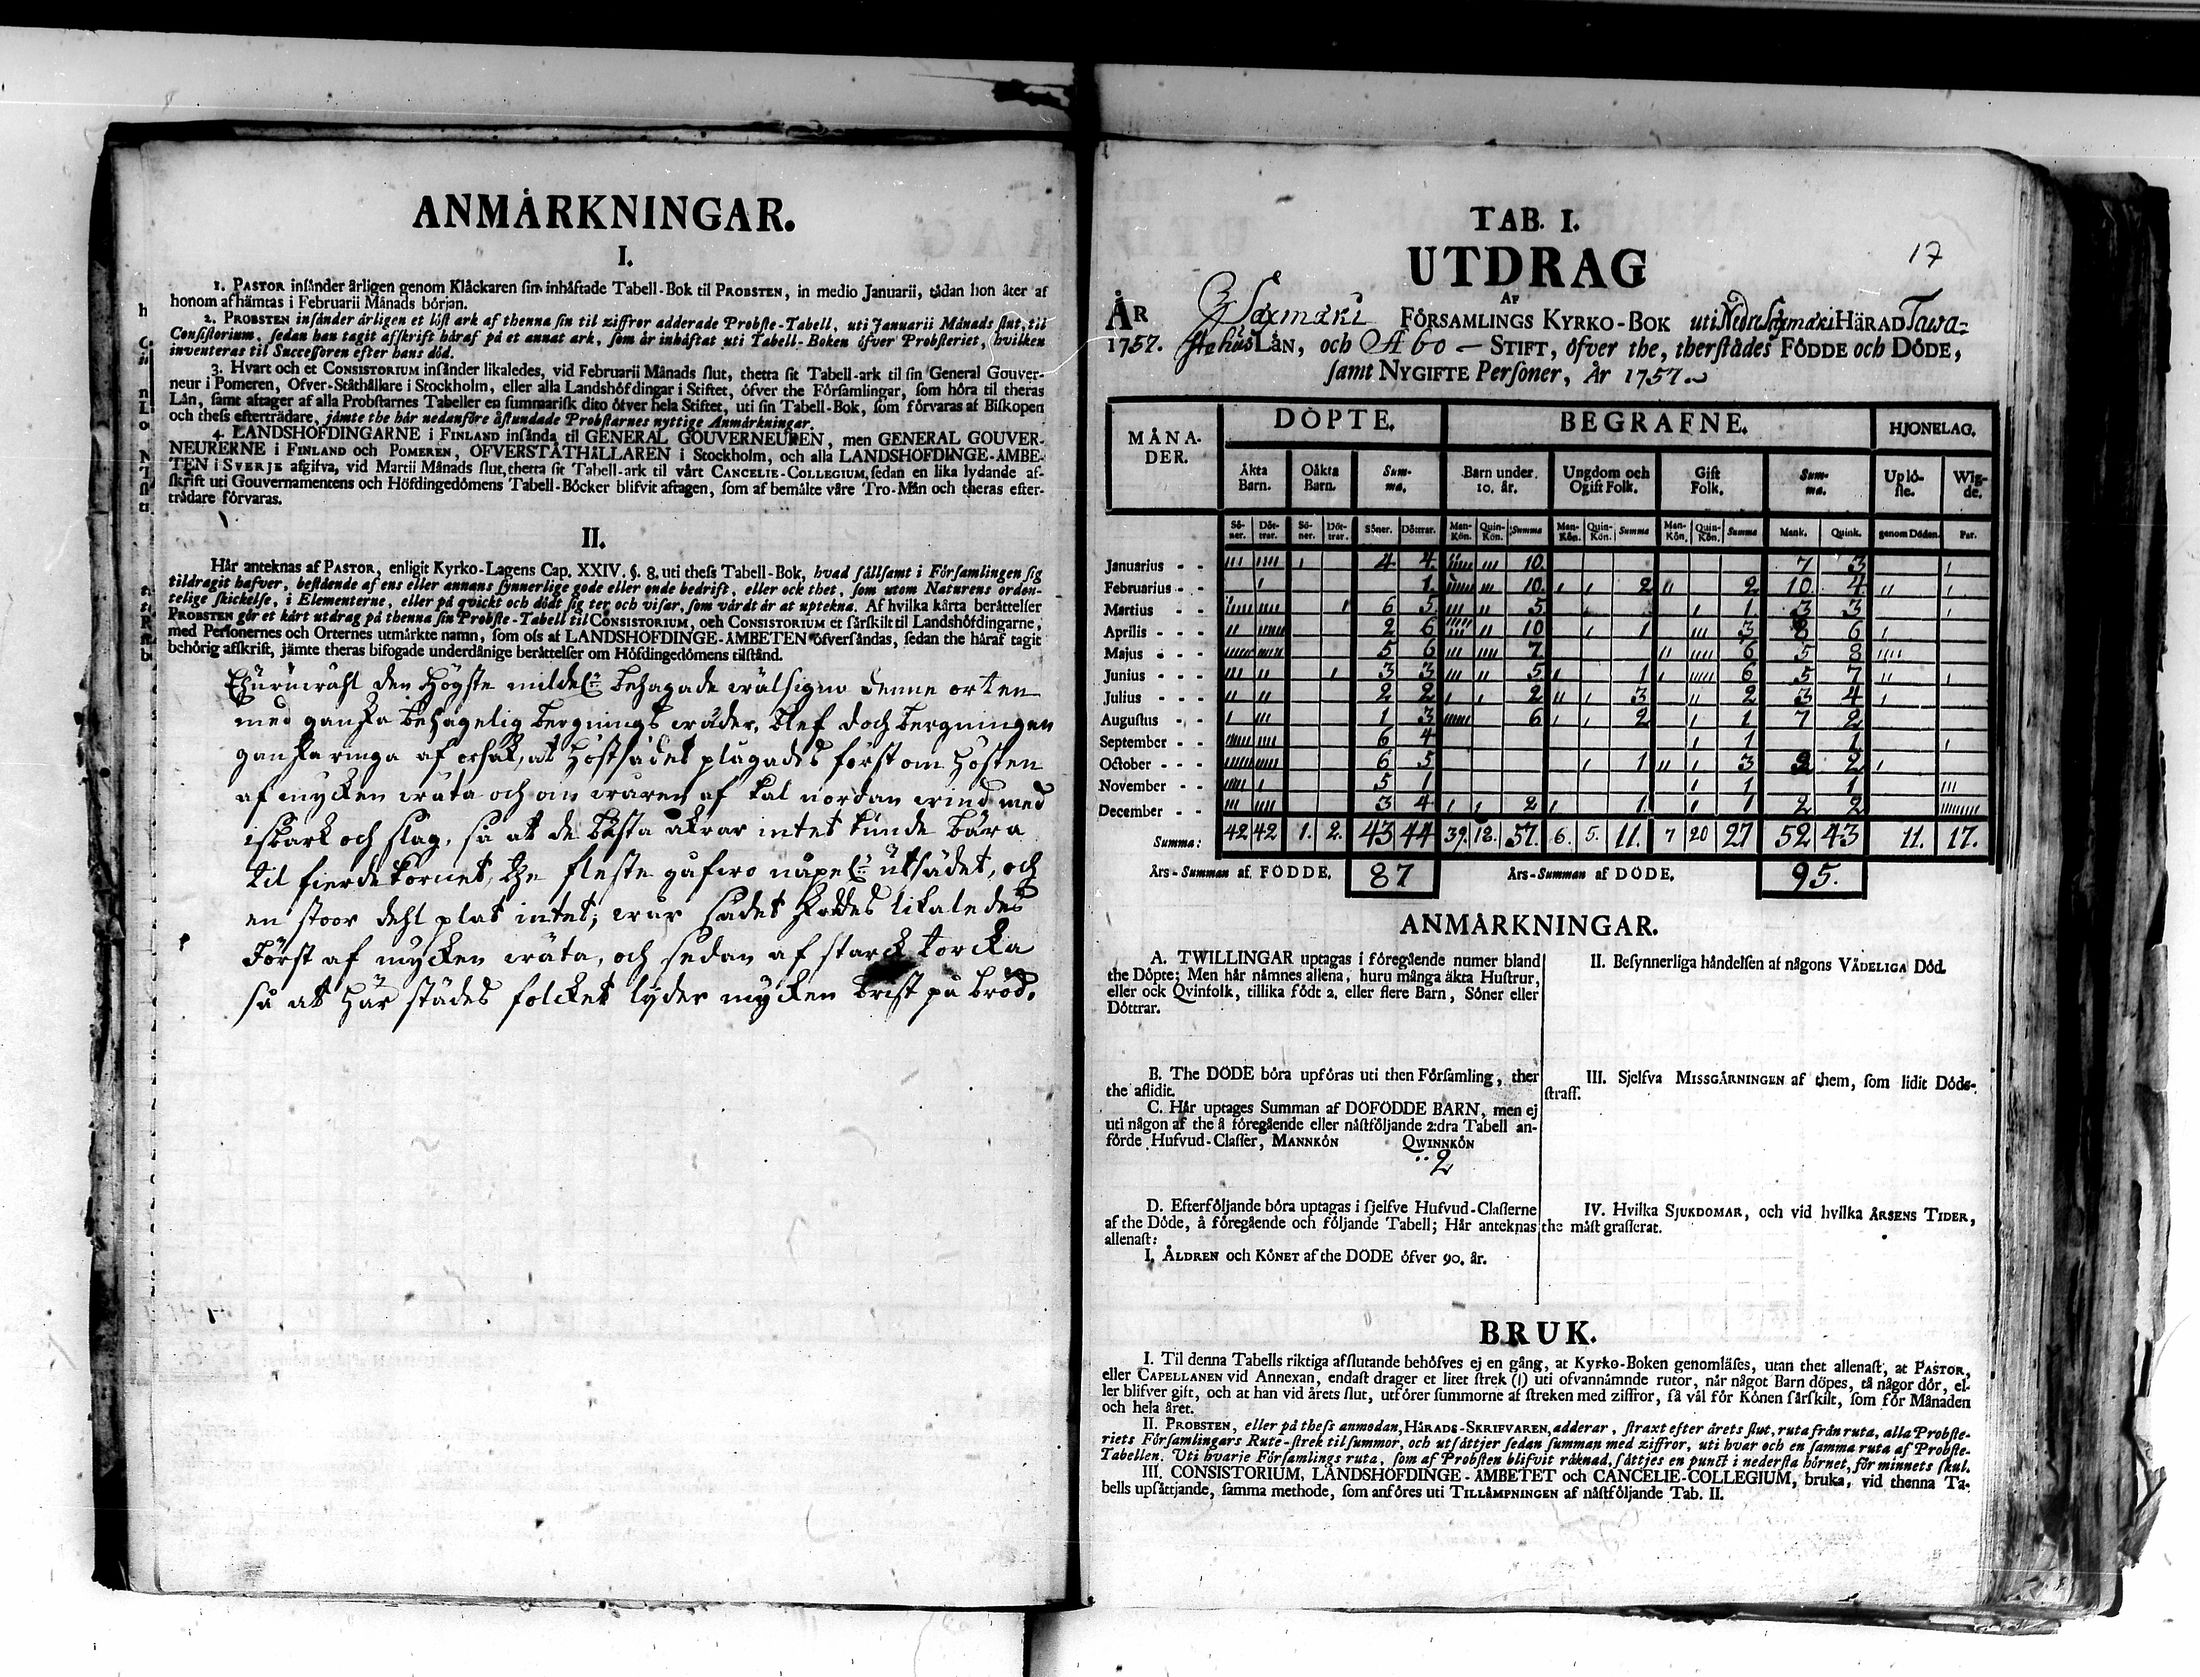 ANMÅRKNINGAR.
I.
1. PASTOR insånder årligen genom Klåckaren sin inhåftade Tabell-Bok til PROBSTEN, in medio Januarii, tådan hon åter af
honom afhåmtas i Februarii Månads början.
2. PROBSTEN insånder årligen et löst ark af thenna sin til ziffror adderade Probste-Tabell, uti Januarii Månads slut, til
Consistorium, sedan han tagit afskrift håraf på et annat ark, som år inhåftat uti Tabell-Boken öfver Probsteriet, hvilken
inventeras til Successoren efter hans död.
3. Hvart och et CONSISTORIUM insånder likaledes, vid Februarii Månads slut, thetta sit Tabell-ark til sin General Gouver-
neur i Pomeren, Öfver-Ståthållare i Stockholm, eller alla Landshöfdingar i Stiftet, öfver the Församlingar, som höra til theras
Lån, samt aftager af alla Probstarnes Tabeller en summarisk dito öfver hela Stiftet, uti sin Tabell-Bok, som förvaras af Biskopen
och thess eftertrådare, jåmte the hår nedanföre åstundade Probstarnes nyttige Anmårkningar.
4. LANDSHÖFDINGARNE i FINLAND insånda til GENERAL GOUVERNEUREN, men GENERAL GOUVER-
NEURERNE i FINLAND och POMEREN, ÖFVERSTÅTHÅLLAREN i Stockholm, och alla LANDSHÖFDINGE-ÅMBE-
TEN i SVERJE afgifva, vid Martii Månads slut, thetta sit Tabell-ark til vårt CANCELIE-COLLEGIUM, sedan en lika lydande af-
skrift uti Gouvernamentens och Höfdingedömens Tabell-Böcker blifvit aftagen, som af bemålte våre Tro-Mån och theras efter-
trådare förvaras.
II.
Hår anteknas af PASTOR, enligit Kyrko-Lagens Cap. XXIV. §. 8. uti thess Tabell-Bok, hvad sållsamt i Församlingen sig
tildragit hafver, bestående af ens eller annans synnerlige gode eller onde bedrift, eller ock thet, som utom Naturens orden-
telige skickelse, i Elementerne, eller på qvickt och dödt sig ter och visar, som vårdt år at uptekna. Af hvilka kårta beråttelser
PROBSTEN gör et kårt utdrag på thenna sin Probste-Tabell til CONSISTORIUM, och CONSISTORIUM et sårskilt til Landshöfdingarne,
med Personernes och Orternes utmårkte namn, som oss af LANDSHÖFDINGE-ÅMBETEN öfversåndas, sedan the håraf tagit
behörig afskrift, jåmte theras bifogade underdånige beråttelser om Höfdingedömens tilstånd.
Ehuruwähl den Högste mildel: behagade wälsigna denne orten
med ganska behagelig bergnings wäder, blef doch bergningen
ganska ringa af orsak, at höstsädet plågades först om hösten
af mycken wäta och om wåren af kal nordan wind med
isbark och slag, så at de bästa åkrar intet kunde bära
til fierde kornet, The fleste gåfwo näpel: utsädet, och
en stoor dehl plat intet; wår sädet skaddes likaledes
först af mycken wäta, och sedan af starck torcka
så at här städes folcket lyder mycken brist på bröd.
17
TAB. I.
UTDRAG
AF
ÅR Saxmäki FÖRSAMLINGS KYRKO-BOK uti Nedre Saxmäki HÄRAD Tawa-
1757. stehus LÅN, och Abo STIFT, öfver the, therstådes FÖDDE och DÖDE,
samt NYGIFTE Personer, År 1757.
MÅNA-DER. DÖPTE. BEGRAFNE. HJONELAG.
Åkta Barn. Oåkta Barn. Summa. Barn under 10. år. Ungdom och Ogift Folk. Gift Folk. Summa. Uplöste. Wigde.
Söner. Döttrar. Söner. Döttrar. Söner. Döttrar. Man-Kön. Quin-Kön. Summa Man-Kön. Quin-Kön. Summa Man-Kön. Quin-Kön. Summa Mank. Quink. genom Döden. Par.
Januarius - - 4 4 10 7 3
Februarius - - 1 10 2 2 10 4
Martius - - 6 5 5 1 3 3
Aprilis - - - 2 6 10 1 3 8 6
Majus - - - 5 6 7 6 5 8
Junius - - - 3 3 5 1 6 5 7
Julius - - - 2 2 2 3 2 3 4
Augustus - - 1 3 6 2 1 7 2
September - - 6 4 1 1
October - - - 6 5 1 3 2 2
November - - 5 1 1 1
December - - 3 4 2 1 1 2 2
Summa: 42 42 1. 2. 43 44 39. 18. 57. 6. 5. 11. 7 20 27 52 43 11. 17.
Års-Summan af FÖDDE. 87 Års-Summan af DÖDE. 95.
ANMÅRKNINGAR.
A. TWILLINGAR uptagas i föregående numer bland
the Döpte; Men hår nåmnes allena, huru många åkta Hustrur,
eller ock Qvinfolk, tillika födt 2. eller flere Barn, Söner eller
Döttrar.
B. The DÖDE böra upföras uti then Församling, ther
the aflidit.
C. Hår uptages Summan af DÖFÖDDE BARN, men ej
uti någon af the å föregående eller nåstföljande 2:dra Tabell an-
förde Hufvud-Classer, MANNKÖN QWINNKÖN
2
D. Efterföljande böra uptagas i sjelfve Hufvud-Classerne
af the Döde, å föregående och följande Tabell; Hår anteknas
allenast:
I. ÅLDREN och KÖNET af the DÖDE öfver 90. år.
II. Besynnerliga håndelsen af någons VÅDELIGA Död.
III. Sjelfva MISSGÅRNINGEN af them, som lidit Döds-
straff.
IV. Hvilka SJUKDOMAR, och vid hvilka ÅRSENS TIDER,
the måst grasserat.
BRUK.
I. Til denna Tabells riktiga afslutande behöfves ej en gång, at Kyrko-Boken genomlåses, utan thet allenast, at PASTOR,
eller CAPELLANEN vid Annexan, endast drager et litet strek (|) uti ofvannåmnde rutor, når något Barn döpes, tå någor dör, el-
ler blifver gift, och at han vid årets slut, utförer summorne af streken med ziffror, så vål för Könen sårskilt, som för Månaden
och hela året.
II. PROBSTEN, eller på thess anmodan, HÅRADS-SKRIFVAREN, adderar, straxt efter årets slut, ruta från ruta, alla Probste-
riets Församlingars Rute-strek til summor, och utsåttjer sedan summan med ziffror, uti hvar och en samma ruta af Probste-
Tabellen. Uti hvarje Församlings ruta, som af Probsten blifvit råknad, såttjes en punct i nedersta hörnet, för minnets skul.
III. CONSISTORIUM, LANDSHÖFDINGE-ÅMBETET och CANCELIE-COLLEGIUM, bruka, vid thenna Ta-
bells upsåttjande, samma methode, som anföres uti TILLÅMPNINGEN af nåstföljande Tab. II.